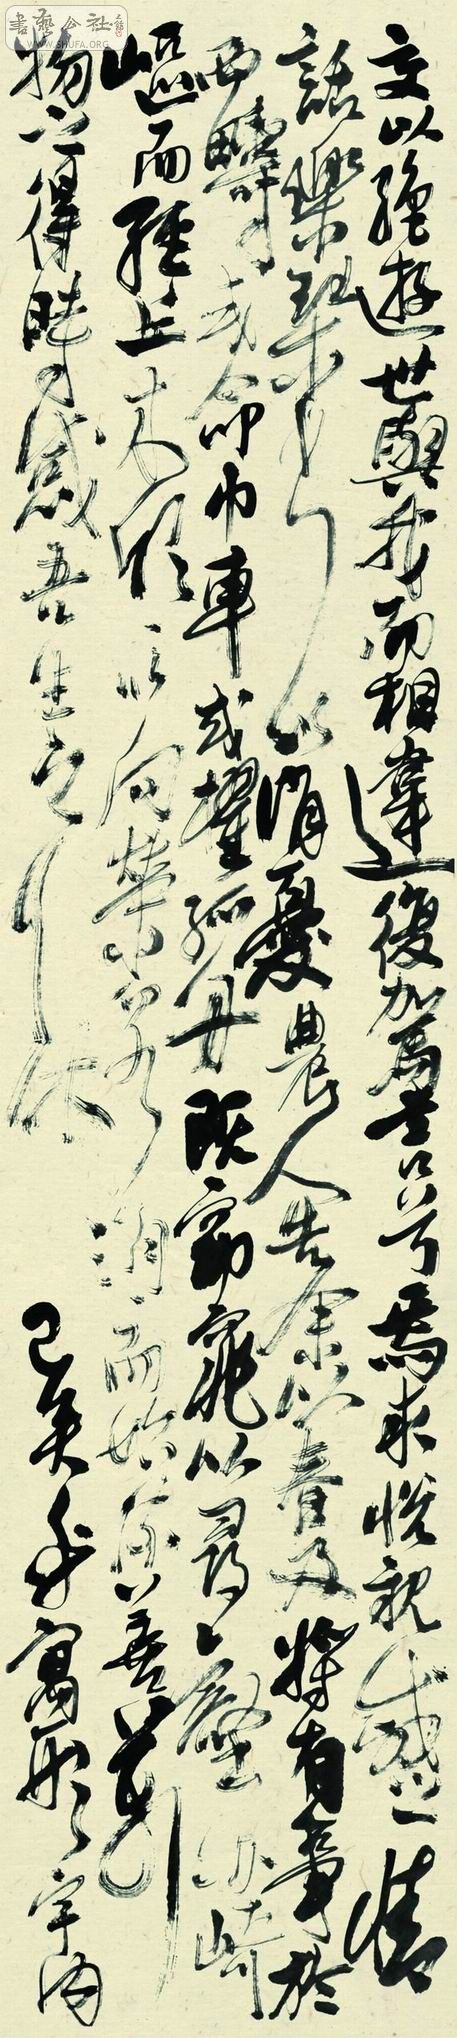 書藝公社
WWW.SHUFA.ORG
交以絕遊世與我而相違復駕言兮焉求悅親戚之情
話樂琴書以消憂農人告余以春及將有事於
西疇或命巾車或擢孤舟既窈窕以尋壑亦崎
嶇而經丘木欣欣以向榮泉涓涓而始流善萬
物之得時感吾生之行休 已矣乎寓形宇內